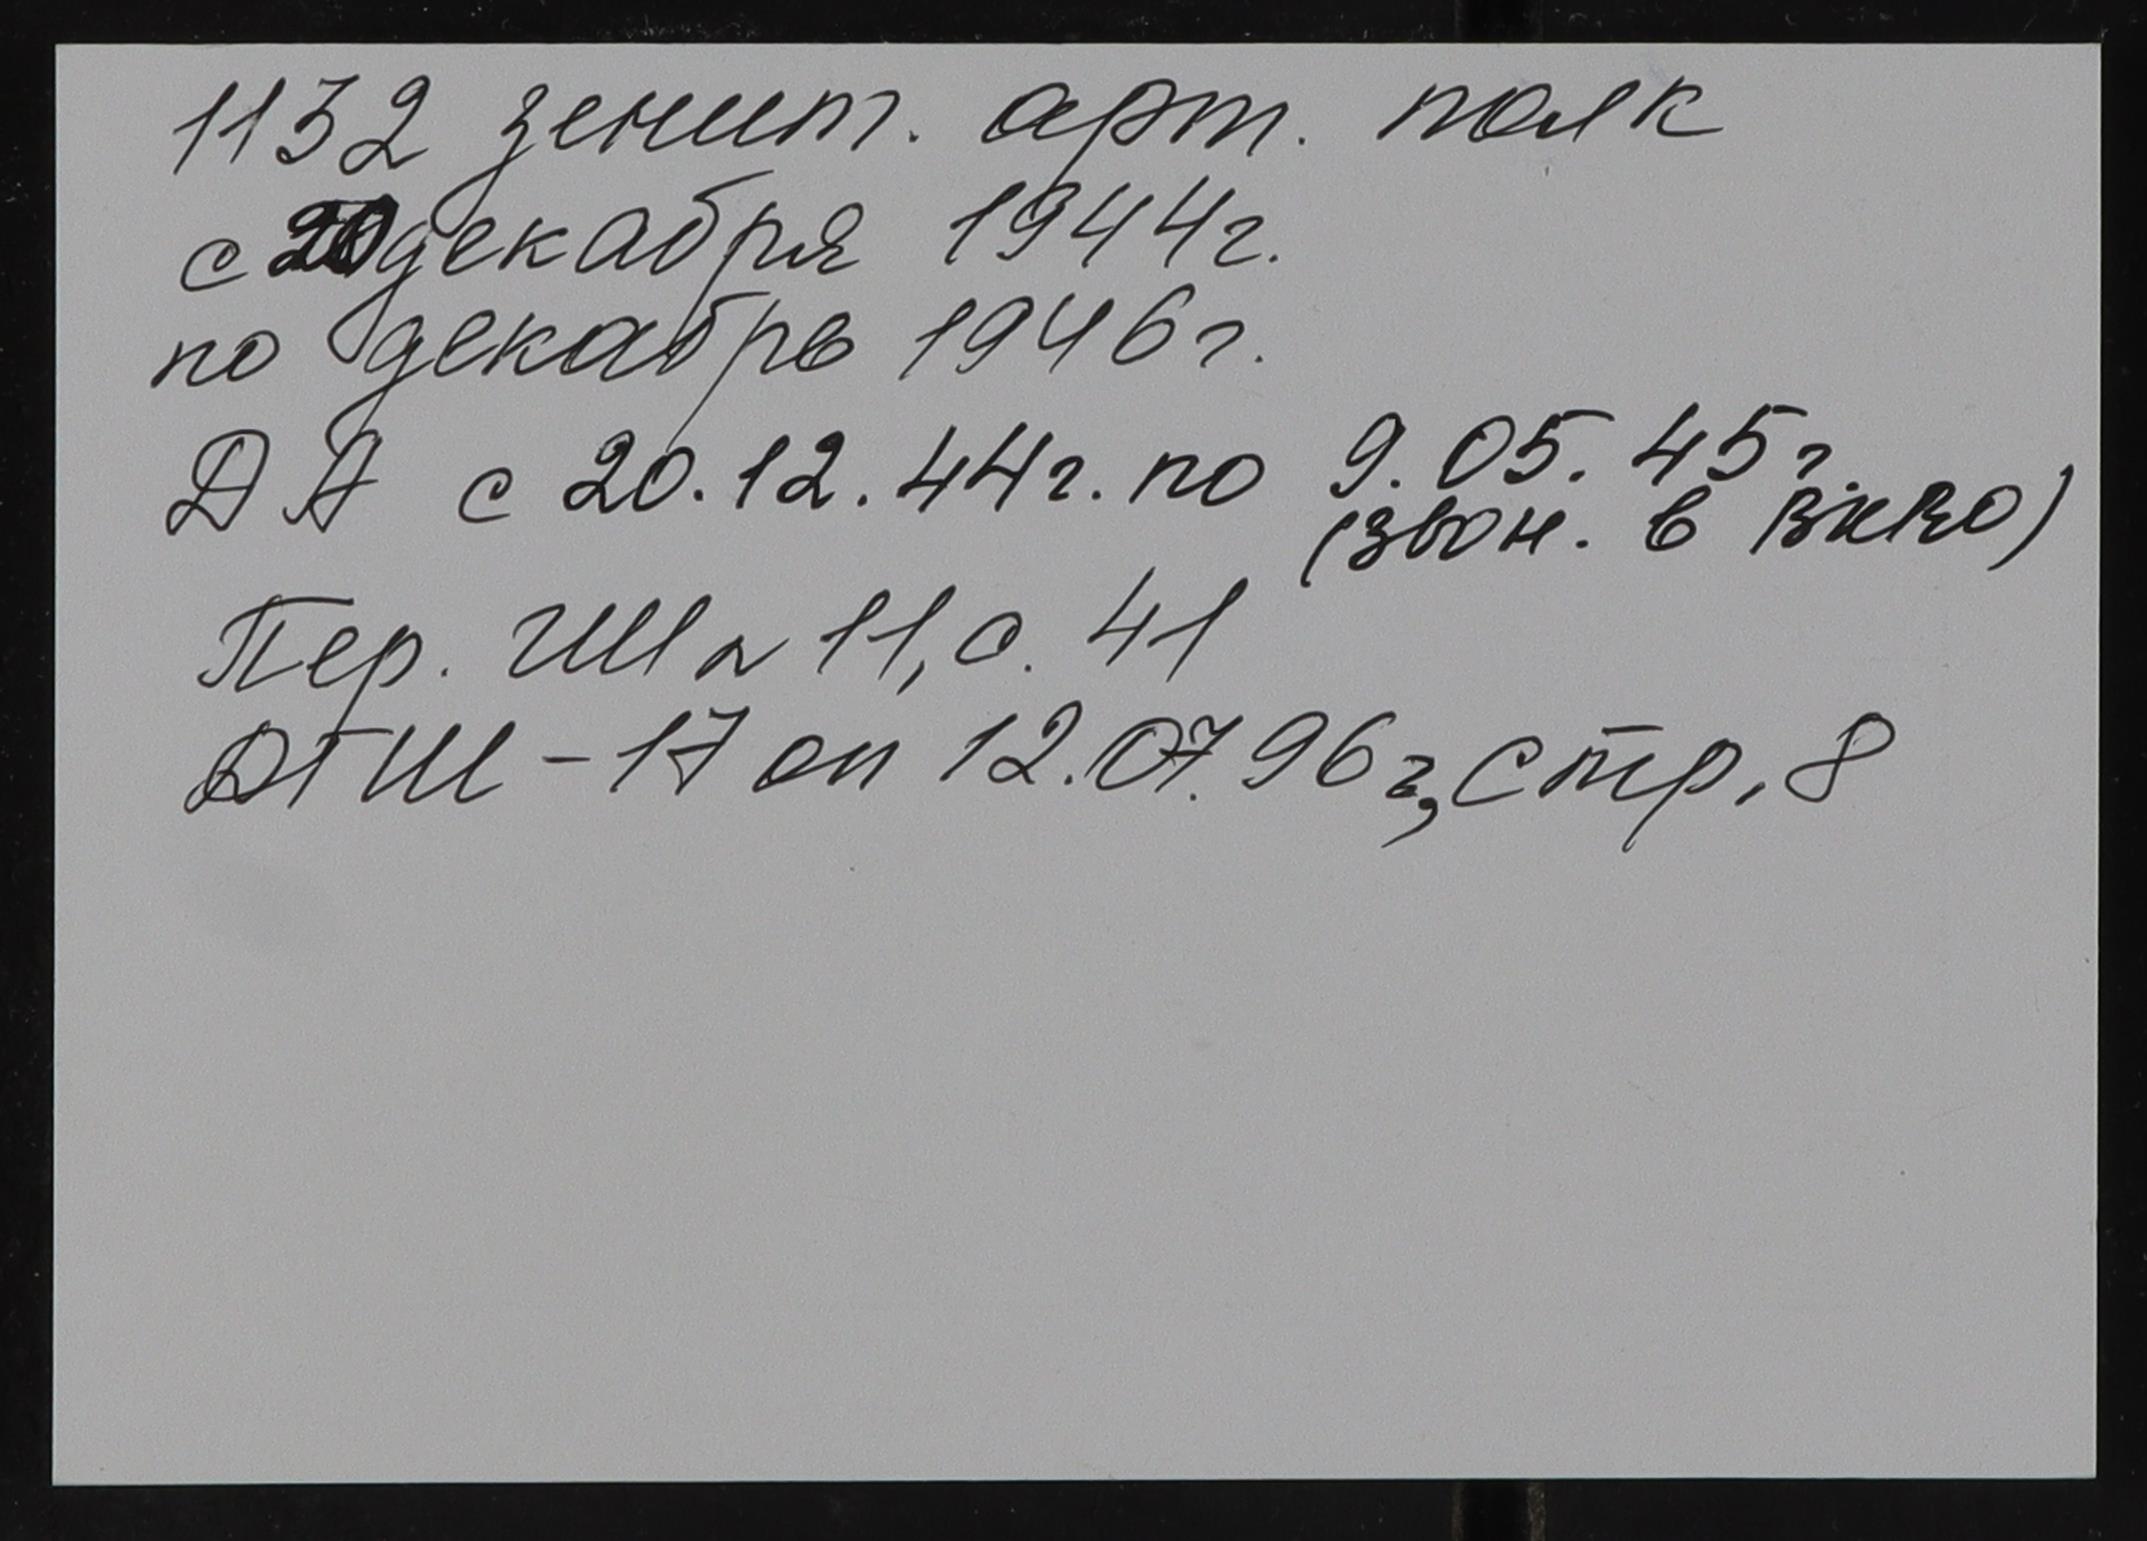 1132 зенит. арт. полк
с 20 декабря 1944г.
по декабрь 1946г.
ДА с 20.12.44г. по 9.05.45г.
(звон. в
Пер. ШІ № 11, с. 41
ДГШ-17 оп 12.07.96г, стр. 8